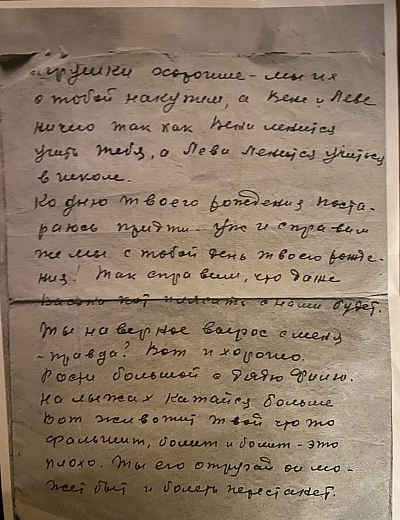 игрушки хорошие - мы их
с тобой накупим, а Вене и Леве
ничего так как Веня ленится
учить тебя, а Лева ленится учиться
в школе.
Ко дню твоего рождения поста-
раюсь придти - уж и справим
же мы с тобой день твоего рожде-
ния! Так справим, что даже
Васька кот плясать с нами будет.
Ты наверное вырос с меня
- правда? Вот и хорошо.
Расти большой с дядю Филю.
На лыжах катайся больше
Вот животит твой что то
фальшит, болит и болит - это
плохо. Ты его отругай он мо-
жет быт и болеть перестанет.